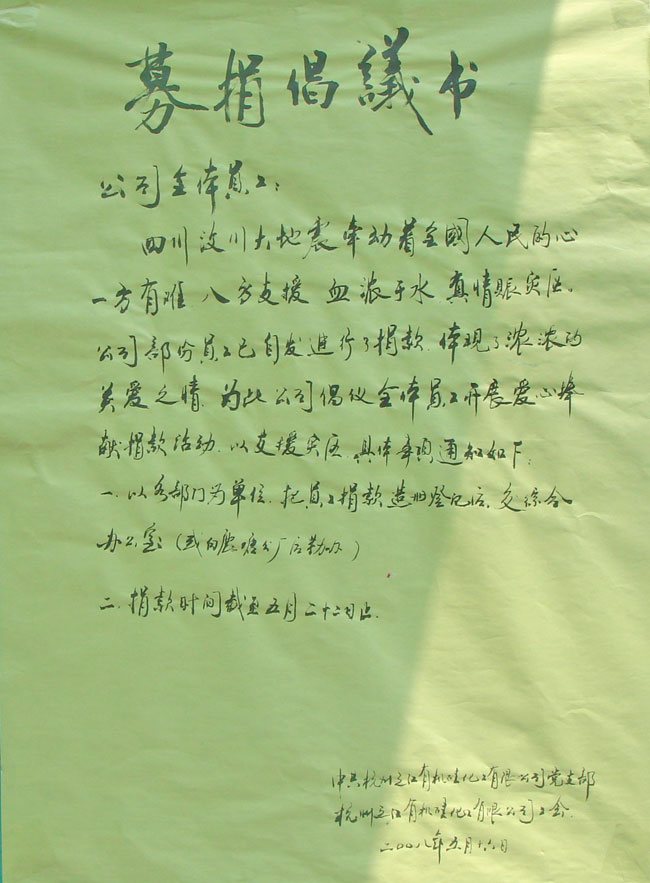 募捐倡議书
公司全体員工：
四川汶川大地震牵动着全國人民的心
一方有难 八方支援 血浓于水 真情赈灾区。
公司部份員工已自发進行了捐款 体现了浓浓的
关爱之情 为此公司倡仪全体員工开展爱心捧
献捐款活动 以支援灾区 具体事项通知如下：
一.以各部门为单位 把員工捐款造册登记后 交综合
办公室（
二.捐款时间截至五月二十二日止.
中共杭州之江有机硅化工有限公司党支部
杭州之江有机硅化工有限公司工会
二〇〇八年五月十六日